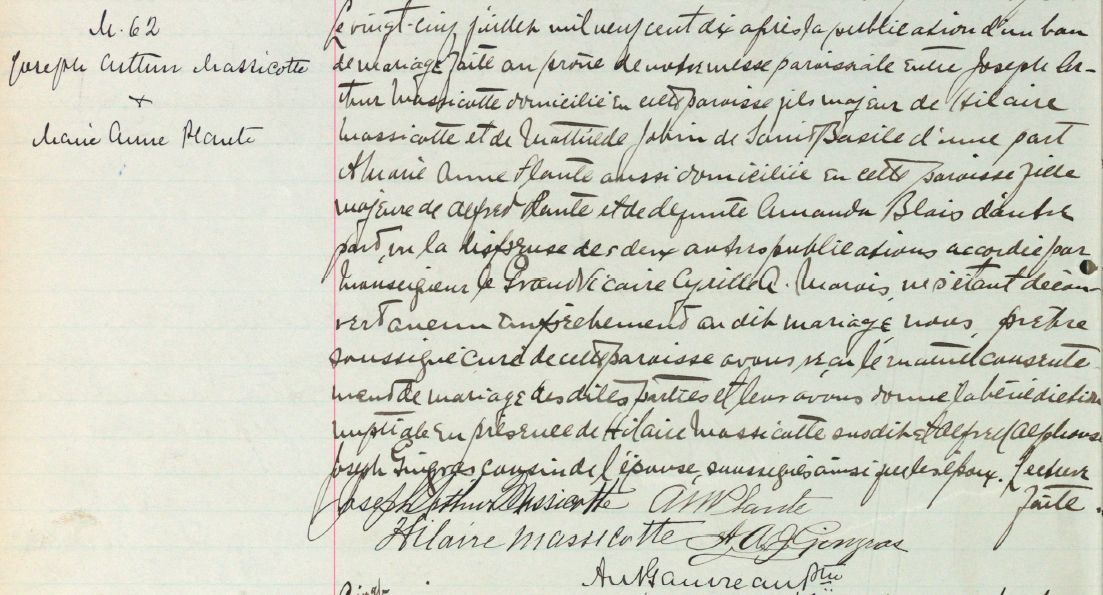 M. 62
Joseph Arthur Massicotte
+
Marie Anne Plante
Le vingt-cinq juillet mil neuf cent dix après la publication d'un ban
de mariage faite au prône de notre messe paroissiale entre Joseph Ar-
thur Massicotte domicilié en cette paroisse fils majeur de Hilaire
Massicotte et de Mathilde Jobin de Saint Basile d'une part
& Marie Anne Plante aussi domiciliée en cette paroisse fille
majeure de Alfred Plante et de défunte Amanda Blais d'autre
part, vu la dispense des deux autres publications accordée par
Monseigneur le Grand Vicaire Cyrille A. Marois, ne s'étant décou-
vert aucun empêchement au dit mariage, nous, prêtre
soussigné curé de cette paroisse avons reçu le mutuel consente-
ment de mariage des dites parties et leur avons donné la bénédiction
nuptiale en présence de Hilaire Massicotte susdit et Alfred Alphonse
Joseph Gingras, cousin de l'épouse, soussignés ainsi que les époux. Lecture
faite.
Joseph Arthur Massicotte A M Plante
Hilaire Massicotte A. A. J. Gingras
Gauvreau Ptre